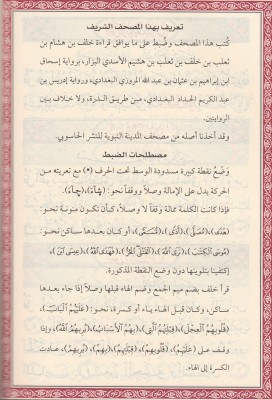 تعريف بهذا المصحف الشريف
كُتب هذا المصحف وضُبط على ما يوافق قراءة خلف بن هشام بن
ثعلب بن خلف بن ثعلب بن هشيم الأسدي البزار، برواية إسحاق
ابن إبراهيم بن عثمان بن عبد الله المروزي البغدادي، ورواية إدريس بن
عبد الكريم الحداد البغدادي، من طريق الدرة، ولا خلاف بين
الروايتين.
وقد أخذنا أصله من مصحف المدينة النبوية للنشر الحاسوبي.
مصطلحات الضبط
وَضْعُ نقطة كبيرة مسدودة الوسط تحت الحرف (•) مع تعريته من
الحركة يدل على الإمالة وصلاً ووقفاً نحو: (شَآءَ)، (جَآءَ).
فإذا كانت الكلمة ممالة وقفاً لا وصلاً، كأن تكون منونة نحو:
(هُدًى)، (مُصَلًّى)، (أَذًى)، (مُّسَمًّى)، أو كان بعدها ساكن نحو:
(مُوسَى ٱلْكِتَٰبَ)، (نَرَى ٱللَّهَ)، (ٱلْقَتْلَى ٱلْحُرُّ)، (فَهَدَى ٱللَّهُ)، (عِيسَى ٱبْنَ)،
إكتفينا بتلوينها دون وضع النقطة المذكورة.
قرأ خلف بضم ميم الجمع وضم الهاء قبلها وصلاً إذا جاء بعدها
ساكن، وكان قبل الهاء ياء أو كسرة، نحو:
(قُلُوبِهُمُ ٱلْعِجْلَ)، (قِبْلَتِهُمُ ٱلَّتِي)، (بِهُمُ ٱلْأَسْبَابُ)، (يُرِيهُمُ ٱللَّهُ)، وإذا
وقف على (عَلَيْهِمْ)، (قُلُوبِهِمْ)، (قِبْلَتِهِمْ)، (بِهِمْ)، (يُرِيهِمْ)، عادت
الكسرة إلى الهاء.